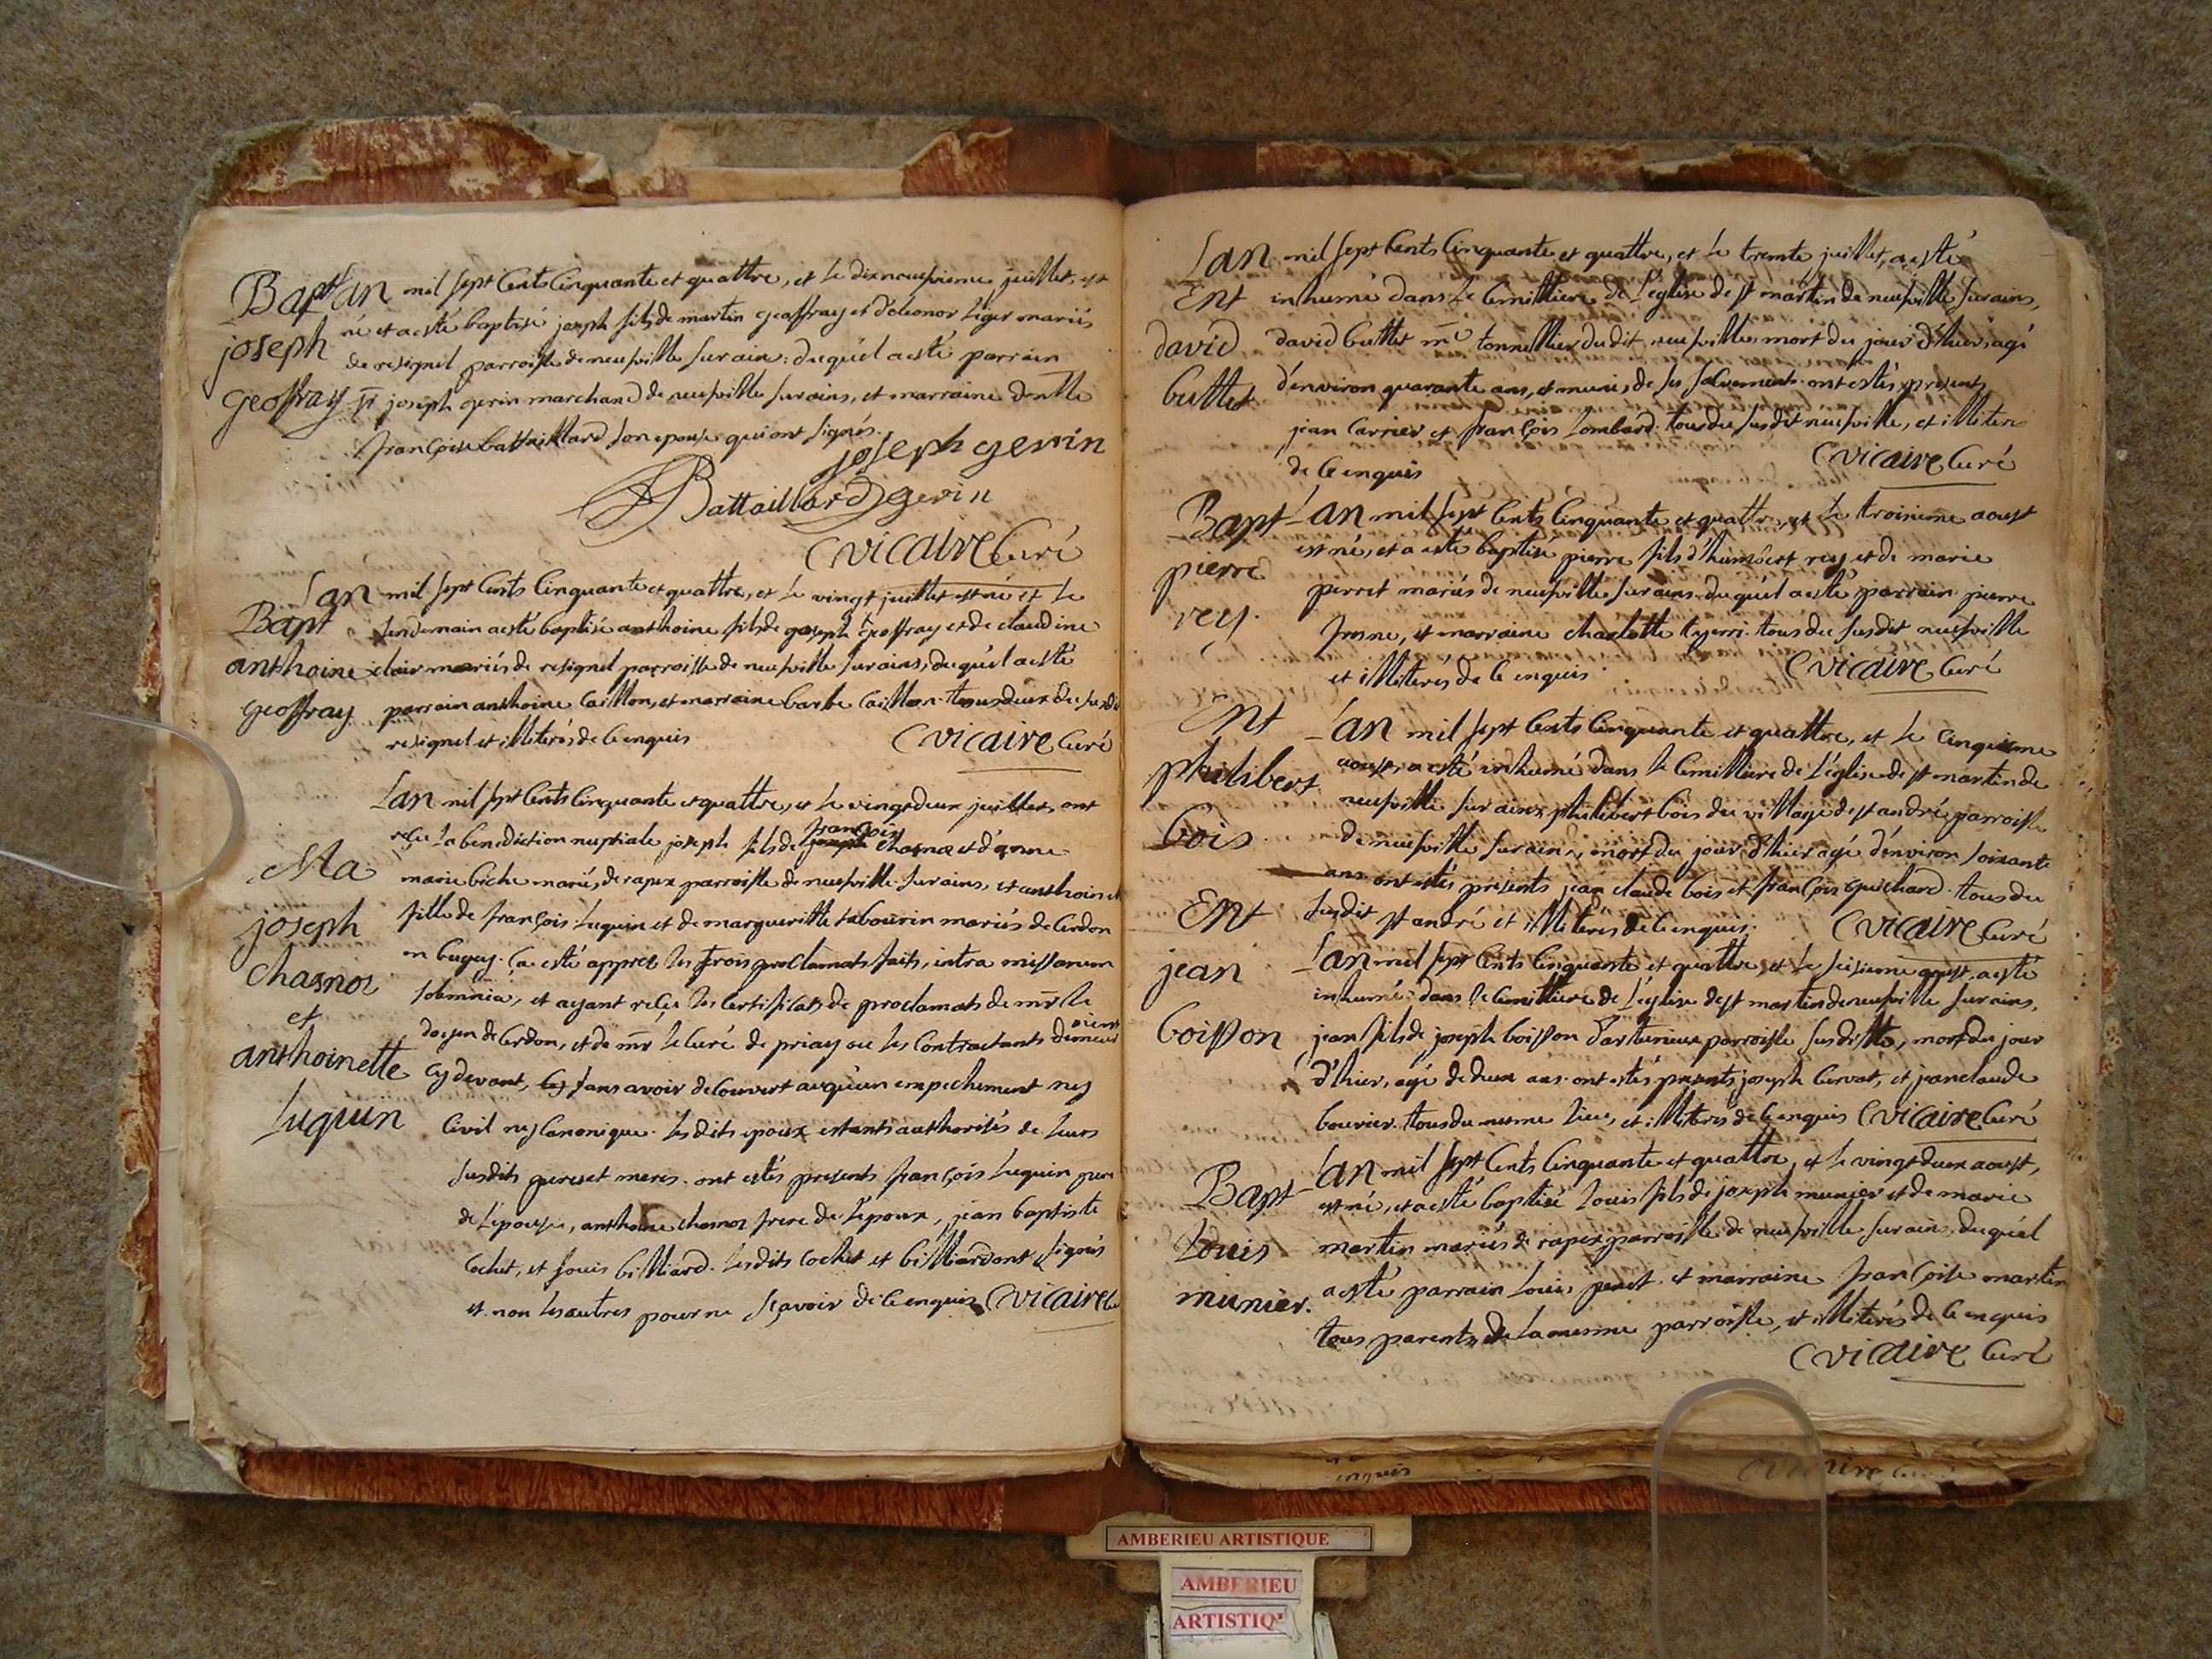 Bapt
joseph
geoffray
Lan mil sept Cents Cinquante et quattre, et le dixneufvieme juillet, est
né et a esté baptisé joseph fils de martin geoffray et d'éleonor Liger mariés
de resignel parroisse de neufville sur ains: duquel a esté parrain
sr joseph gerin marchand de neufville sur ains, et marraine
françoise battaillard son epouse qui ont signés.
joseph gerin
Battaillard gerin
Vicaire Curé
Bapt
anthoine
geoffray
Lan mil sept Cents Cinquante et quattre, et le vingt juillet est né et le
lendemain a esté baptisé anthoine fils de joseph geoffray et de claudine
clair mariés de resignel parroisse de neufville sur ains, duquel a esté
parrain anthoine Caillon, et marraine barbe Caillon tous deux du susdit
resignel et illiterés de Ce enquis
Vicaire Curé
Ma
joseph
chasnoz
et
anthoinette
Luquin
Lan mil sept Cents Cinquante et quattre, et le vingt deux juillet, ont
reçu La benediction nuptiale joseph fils de françois joseph chasnoz et d'anne
marie biche mariés, de rapex parroisse de neufville sur ains, et anthoinette
fille de françois Luquin et de margueritte tabourin mariés de Cerdon
en bugey. Ça esté apprez les trois proclamats faits, intra missarum
solemnia, et ayant reçu les Certificats de proclamats de mr le
doyen de Cerdon, et de mr le Curé de priay ou les Contractants demeuroient
Cy devant, sans avoir decouvert auqu'un empechement ny
Civil ny Canonique. Lesdits epoux estants authorités de leurs
susdits peres et meres. ont estés presents françois Luquin pere
de L'epouse, anthoine chasnoz frere de L'epoux, jean baptiste
Cochet, et Louis billiard. Lesdits Cochet et billiard ont signés
et non les autres pour ne sçavoir de Ce enquis Vicaire
Ent
david
buttet
Lan mil sept Cents Cinquante et quattre, et le trente juillet, a esté
inhumé dans Le Cimittiere de L'église de st martin de neufville sur ains,
david buttet me tonnellier dudit neufville, mort du jour d'hier, agé
d'environ quarante ans, et muni de ses sacrements. ont estés presents
jean Carrier et françois Lombard tous du susdit neufville, et illiterés
de Ce enquis
Vicaire Curé
Bapt
pierre
rey.
L'an mil sept Cents Cinquante et quattre, et le troisieme aoust
est né, et a esté baptisé pierre fils d'humbert rey et de marie
perret mariés de neufville sur ains. duquel a esté parrain pierre
et marraine charlotte tous du susdit neufville
et illiterés de Ce enquis
Vicaire Curé
Ent
philibert
bois
L'an mil sept Cents Cinquante et quattre, et le Cinquieme
aoust, a esté inhumé dans le Cimittiere de L'église de st martin de
neufville sur ains, philibert bois du village de st andré parroisse
de neufville sur ains, mort du jour d'hier agé d'environ soixante
ans ont estés presents jean claude bois et françois guichard. tous du
susdit st andré et illiterés de Ce enquis.
Vicaire Curé
Ent
jean
boisson
L'an mil sept Cents Cinquante et quattre, et le seisieme aoust, a esté
inhumé dans le Cimittiere de L'église de st martin de neufville sur ains,
jean fils de joseph boisson parroisse susditte, mort du jour
d'hier, agé de deux ans. ont estés presents joseph Cervat, et jean claude
bouvier. tous du mesme lieu, et illiterés de Ce enquis Vicaire Curé
Bapt
Louis
munier.
L'an mil sept Cents Cinquante et quattre, et le vingt deux aoust,
est né, et a esté baptisé Louis fils de joseph munier et de marie
martin mariés de rapex parroisse de neufville sur ains. duquel
a esté parrain Louis et marraine françoise martin
tous parents de La mesme parroisse, et illiterés de Ce enquis
Vicaire Curé
enquis
AMBERIEU ARTISTIQUE
AMBERIEU
ARTISTIQ